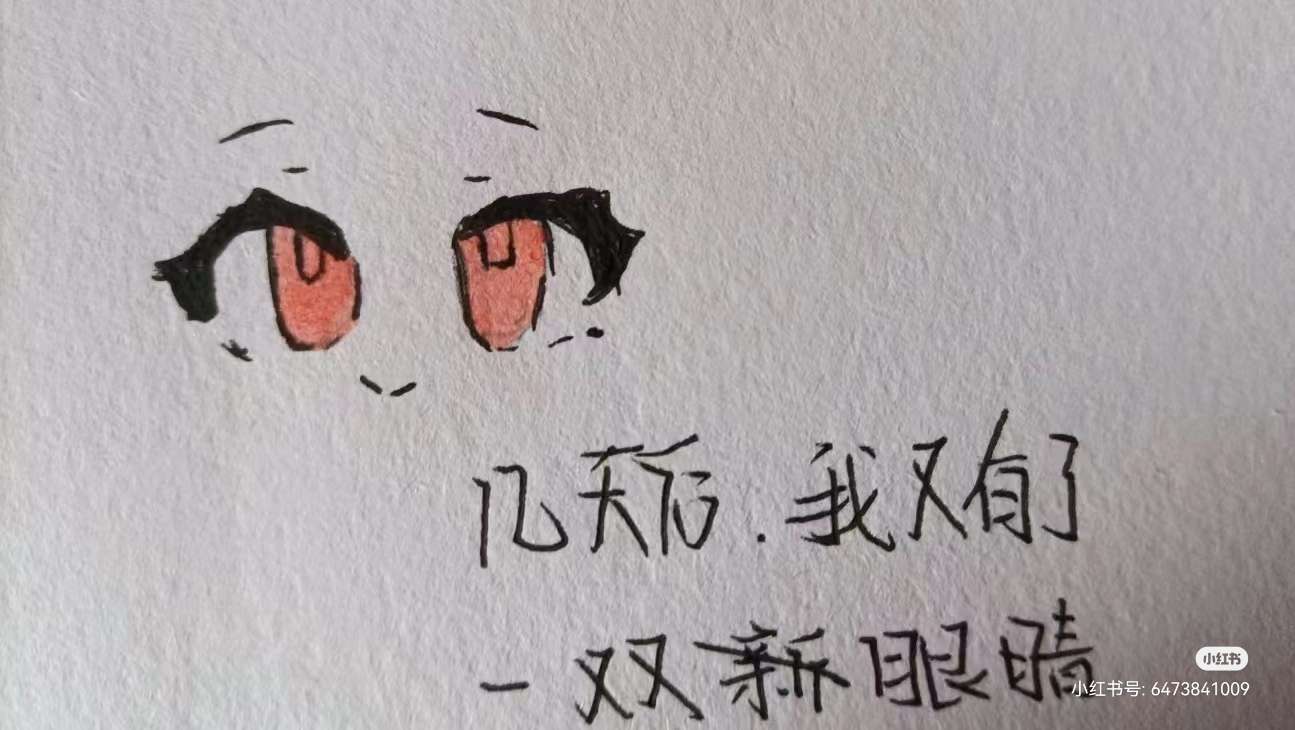 几天后.我又有了
一双新眼睛
小红书
小红书号: 6473841009